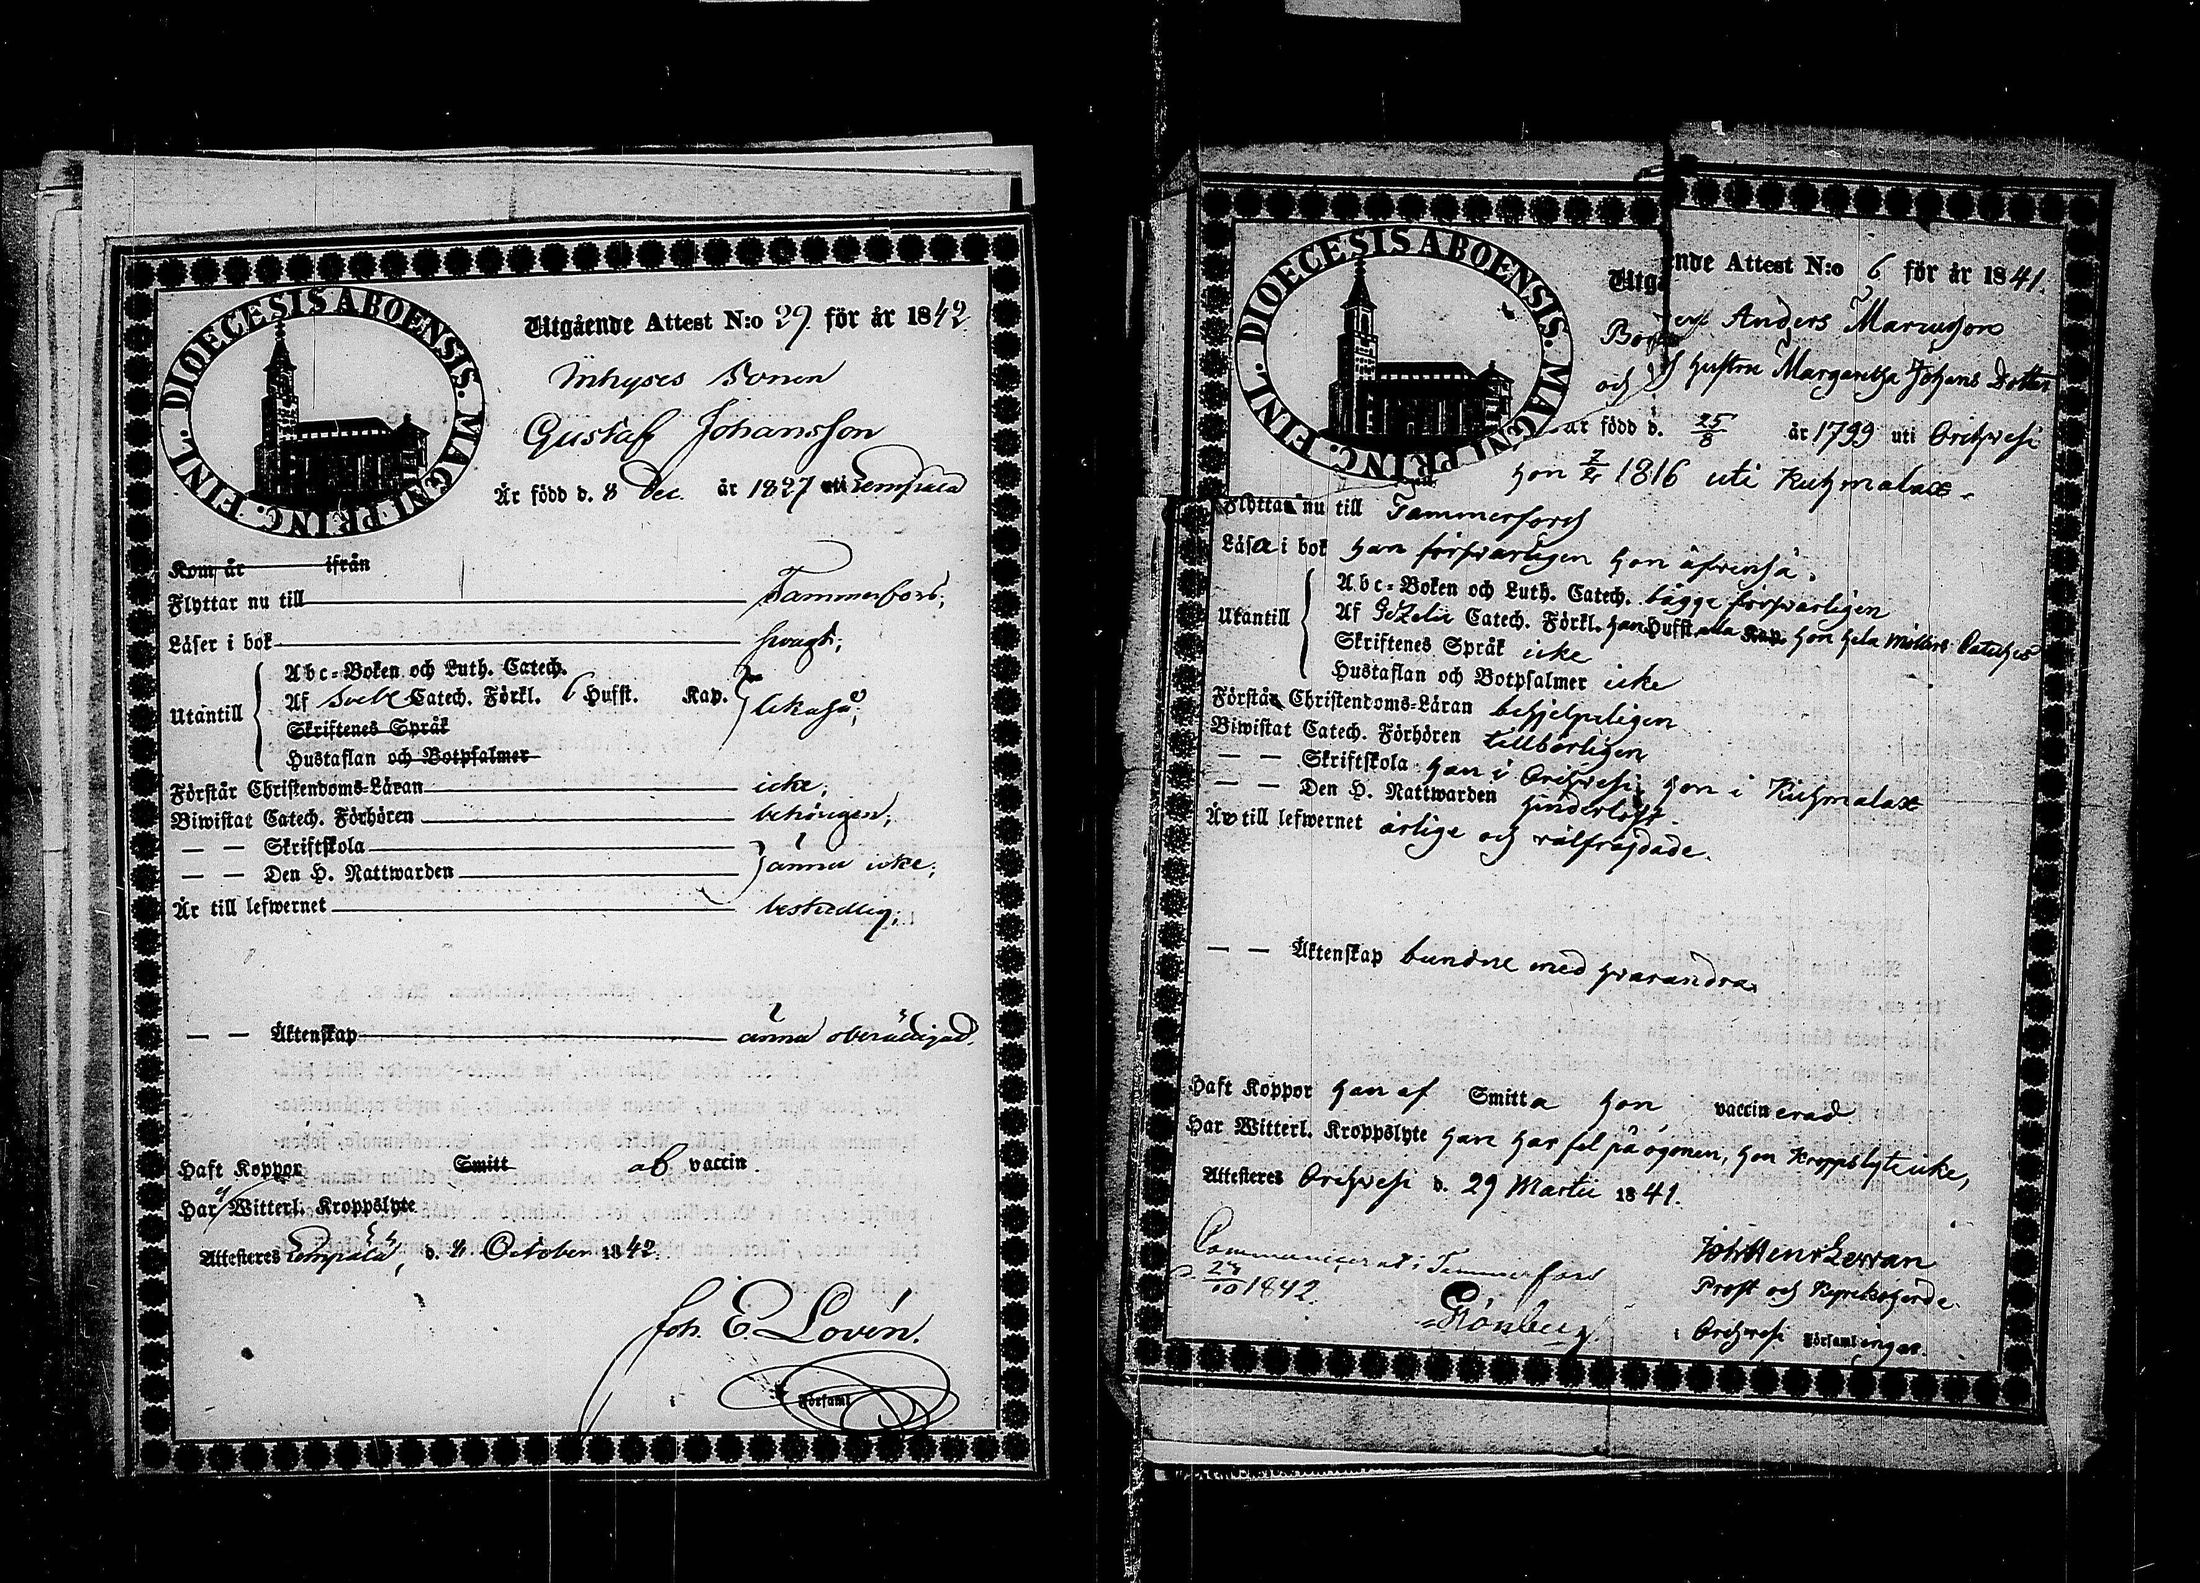 DIOECESIS ABOENSIS. MAGNI PRINC. FINL.
Utgående Attest N:o 29. för år 1842.
Inhyses Sonen
Gustaf Johansson
Är född d. 8 Dec. år 1827 uti Lempälä
Kom år ifrån
Flyttar nu till Tammerfors;
Läser i bok svagt;
Utantill
Abc-Boken och Luth. Catech.
Af Sveb. Catech. Förkl. 6 Hufst. Kap. likaså;
Skriftenes Språk
Hustaflan och Botpsalmer
Förstår Christendoms-Läran icke;
Biwistat Catech. Förhören behörigen;
— — Skriftskola
— — Den H. Nattwarden ännu icke;
Är till lefwernet beskedlig;
— — Äktenskap ännu obesvärgad.
Haft Koppor Smitt ab vaccin
Har Witterl. Kroppslyte
Attesteras Lempälä, d. 8 October 1842.
Joh. E. Lovén.
Församl
DIOECESIS ABOENSIS. MAGNI PRINC. FINL.
Utgående Attest N:o 6 för år 1841.
Anders Marcusson
och Hustru Margaretha Johans Dotter
är född d. 25/8 år 1799 uti Orihvesi
hon 1816 uti Kuhmalax.
Flyttar nu till Tammerfors
Läsa i bok han försvarligen hon äfvenså.
Utantill
Abc-Boken och Luth. Catech. bägge försvarligen
Af Gezelii Catech. Förkl. han Hufst. alla Kap. hon hela Möllers Cateches
Skriftenes Språk icke
Hustaflan och Botpsalmer icke
Förstår Christendoms-Läran behjelpeligen
Biwistat Catech. Förhören tillbörligen
— — Skriftskola han i Orihvesi hon i Kuhmalax
— — Den H. Nattwarden hinderlöst.
Äro till lefwernet ärlige och välfrägdade.
— — Äktenskap bundne med hvarandra.
Haft Koppor han af Smitta hon vaccinerad
Har Witterl. Kroppslyte han har fel på ögonen, hon kroppslyte icke,
Attesteres Orihvesi d. 29 Martii 1841.
Communicerat i Tammerfors
1842.
Joh Henr
Prost och Kyrkoherde
i Orihvesi Församlingar.